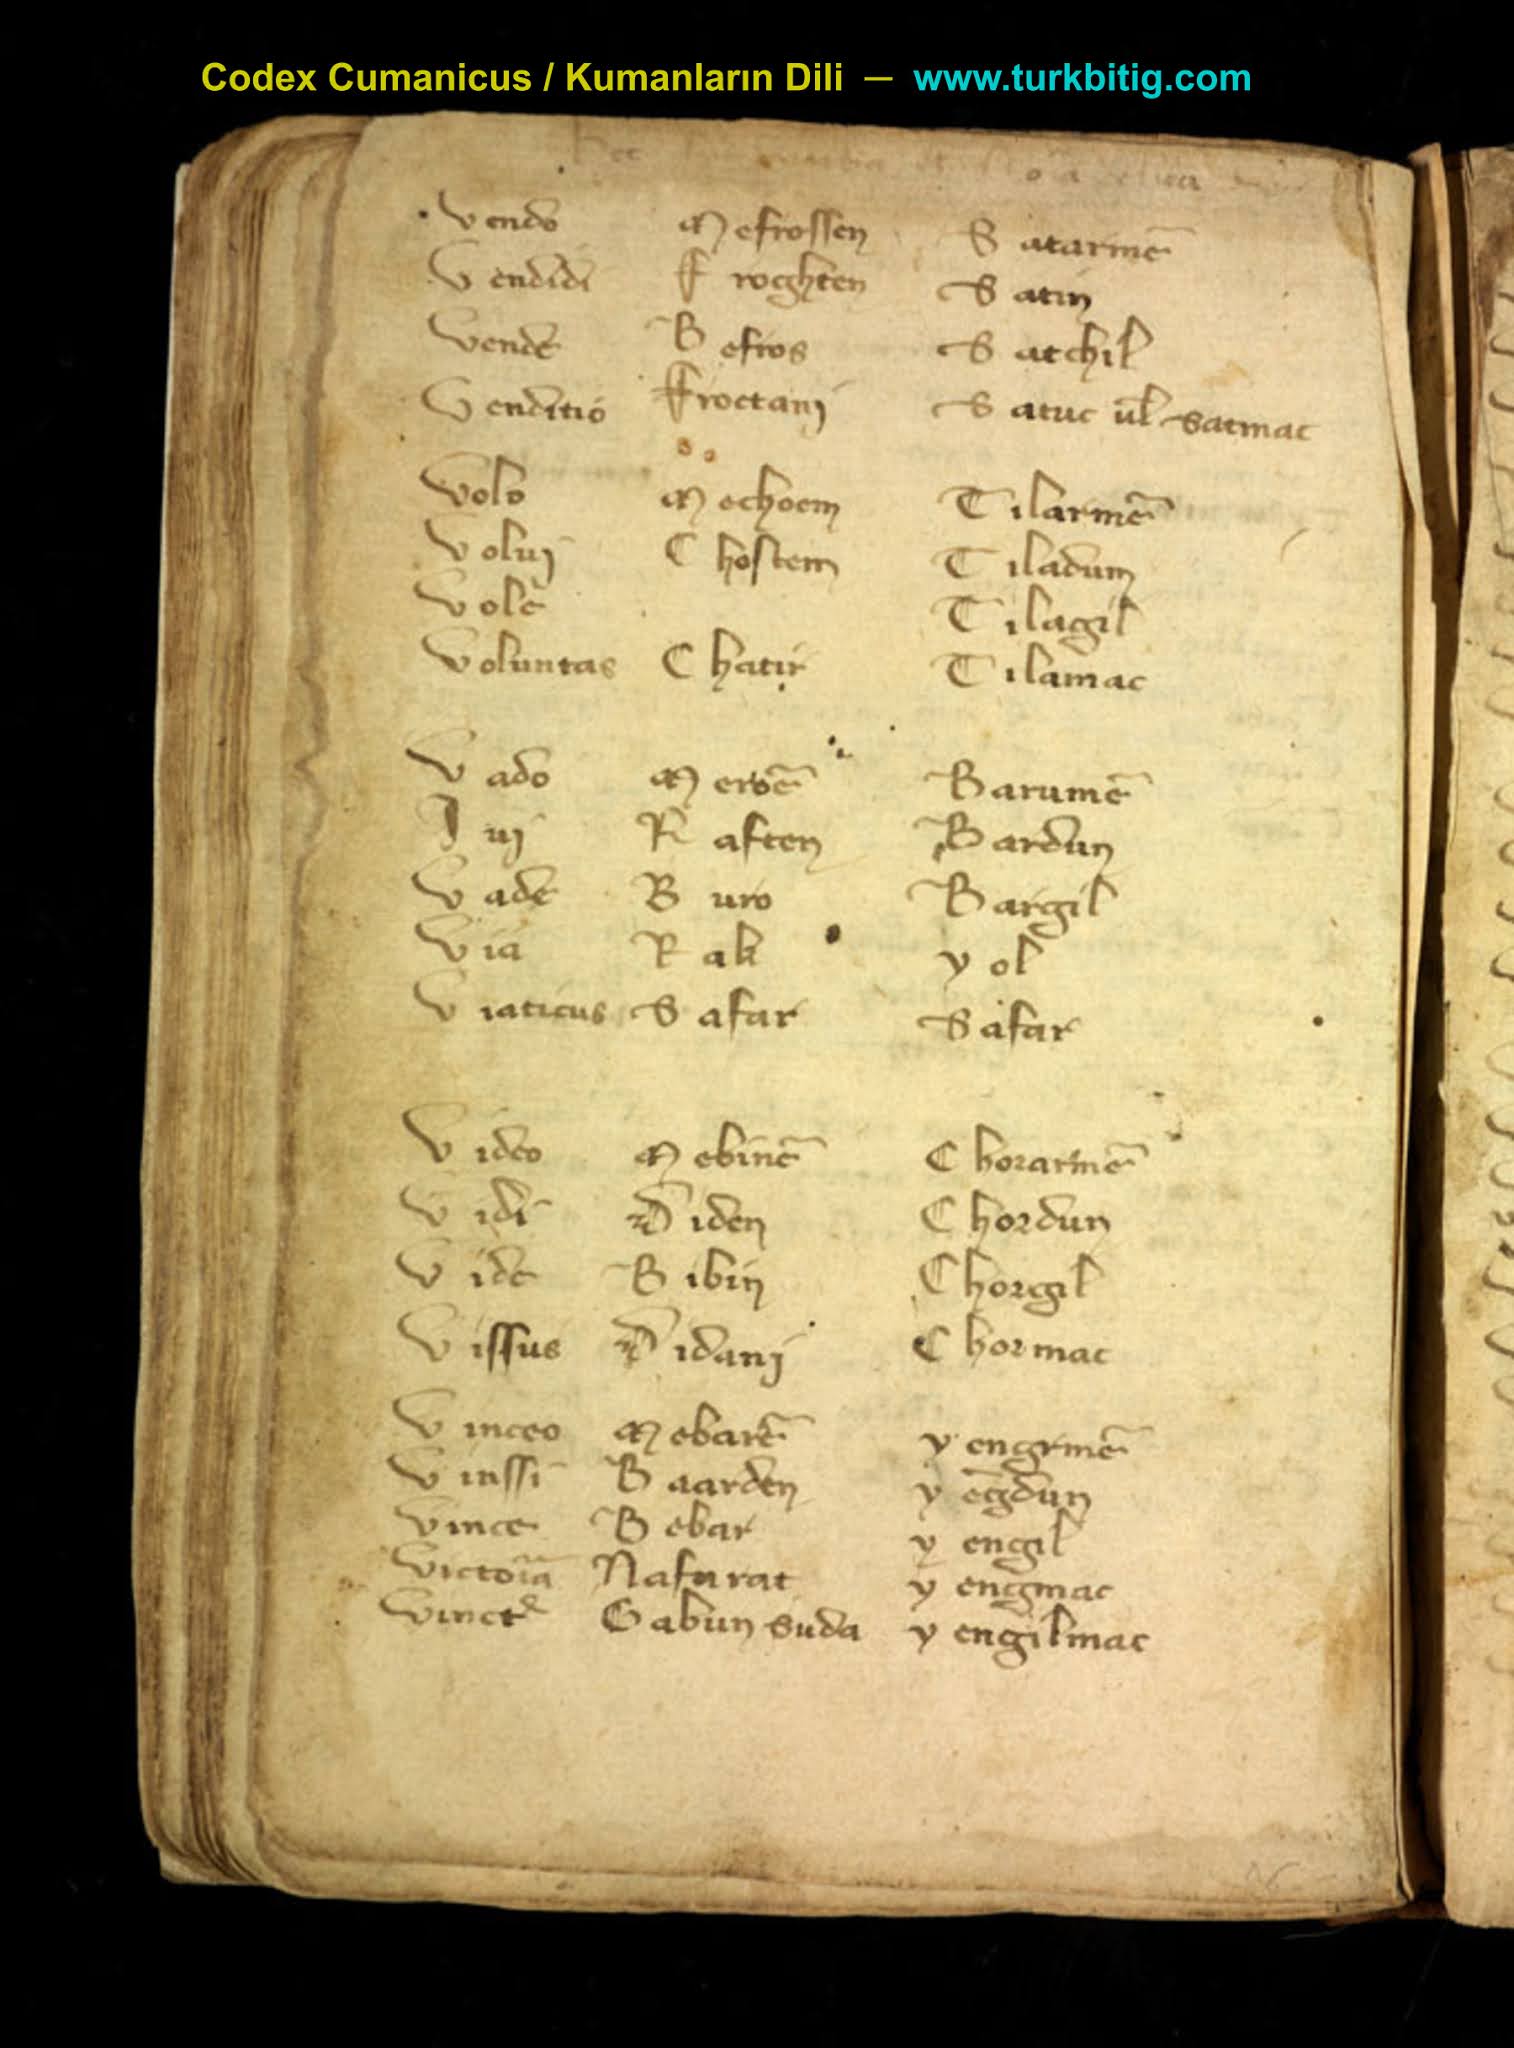 Codex Cumanicus / Kumanların Dili — www.turkbitig.com
Vendo Mefrossen Satarmē
Vendidi Froghten Satin
Vende Befros Satchil
Venditio Froctanj Satuc ul Satmac
Volo Mechoem Tilarmē
Voluj Chostem Tiladum
Vole Tilagil
Voluntas Chatir Tilamac
Vado Meroē Barumē
Iuj Raften Bardun
Vade Buro Bargil
Via Rah yol
Viaticus Safar Safar
Video Mebinē Chorarmē
Vidi Diden Chordun
Vide Bibin Chorgil
Vissus Didanj Chormac
Vinceo Mebarē yengrmē
Vinssi Baarden yēgdun
Vince Bebar yengil
Victoria Nafurat yengmac
Vinct Gabun suda yengilmac